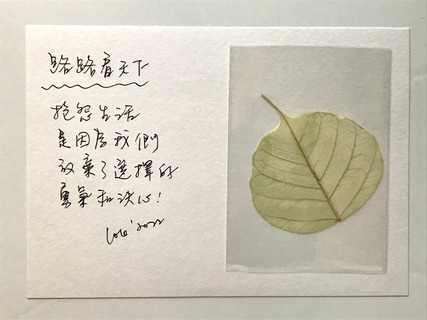 路路看天下
抱怨生活
是因為我們
放棄了選擇的
勇氣和決心!